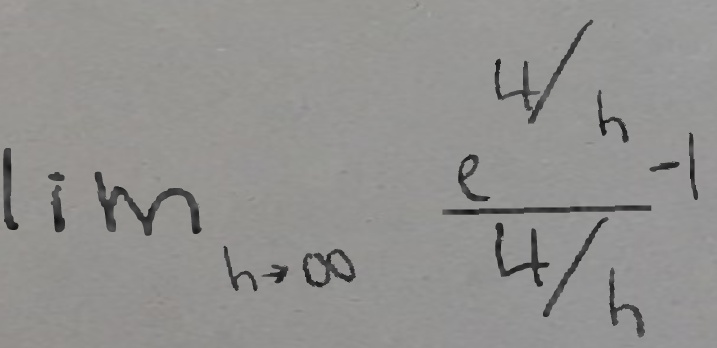 lim h→∞ (e^(4/h) -1) / (4/h)